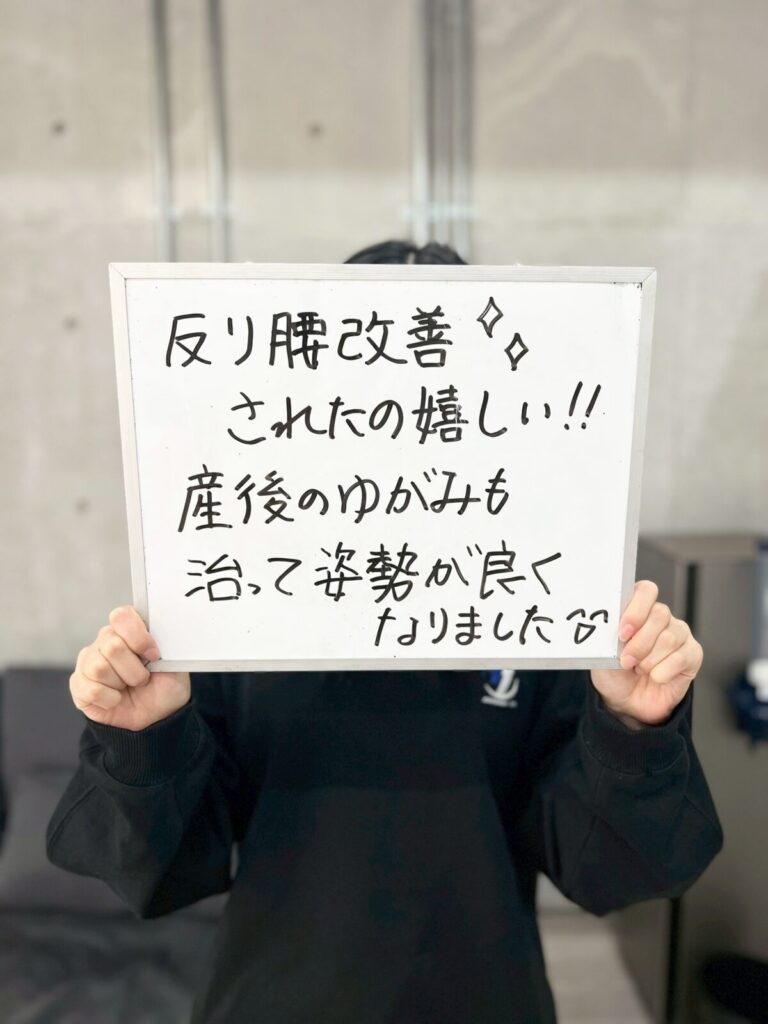 反り腰改善
されたの嬉しい!!
産後のゆがみも
治って姿勢が良く
なりました